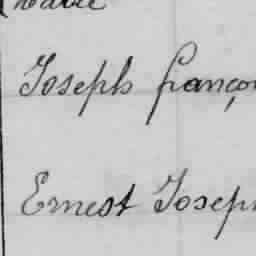 Joseph françoi
Ernest Joseph